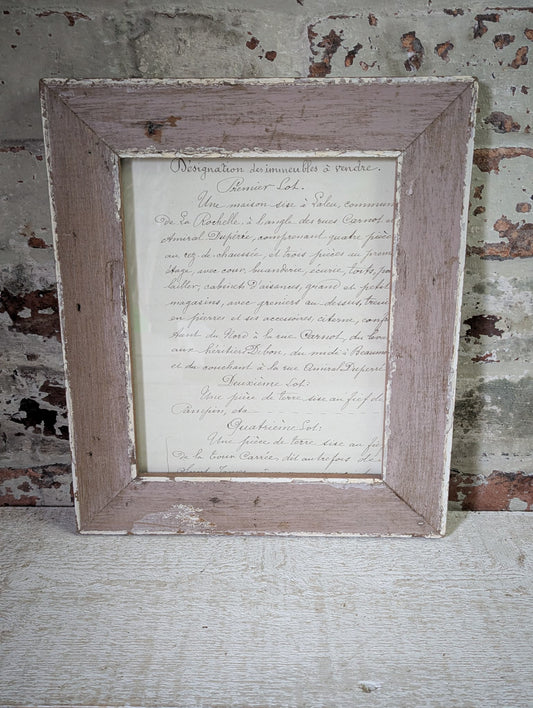 Désignation des immeubles à vendre.
Premier Lot.
Une maison sise à Laleu, commun
De La Rochelle, à l'angle des rues Carnot et
Amiral Duperré, comprenant quatre pièce
au rez de chaussée, et trois pièces au prem
étage, avec cour, buanderie, écurie, toits, po
lailler, cabinets D'aisances, grand et petit
magasins, avec greniers au dessus,
en pierres et ses accessoires, citerne, conf
tant du Nord à la rue Carnot, du lev
aux héritiers Debon, du midi à Beaumo
et du couchant à la rue Amiral Duperré
Deuxième Lot:
Une pièce de terre sise au fief de
eta
Quatrième Lot:
Une pièce de terre sise au fie
De la Tour Carrée, dit autrefois de